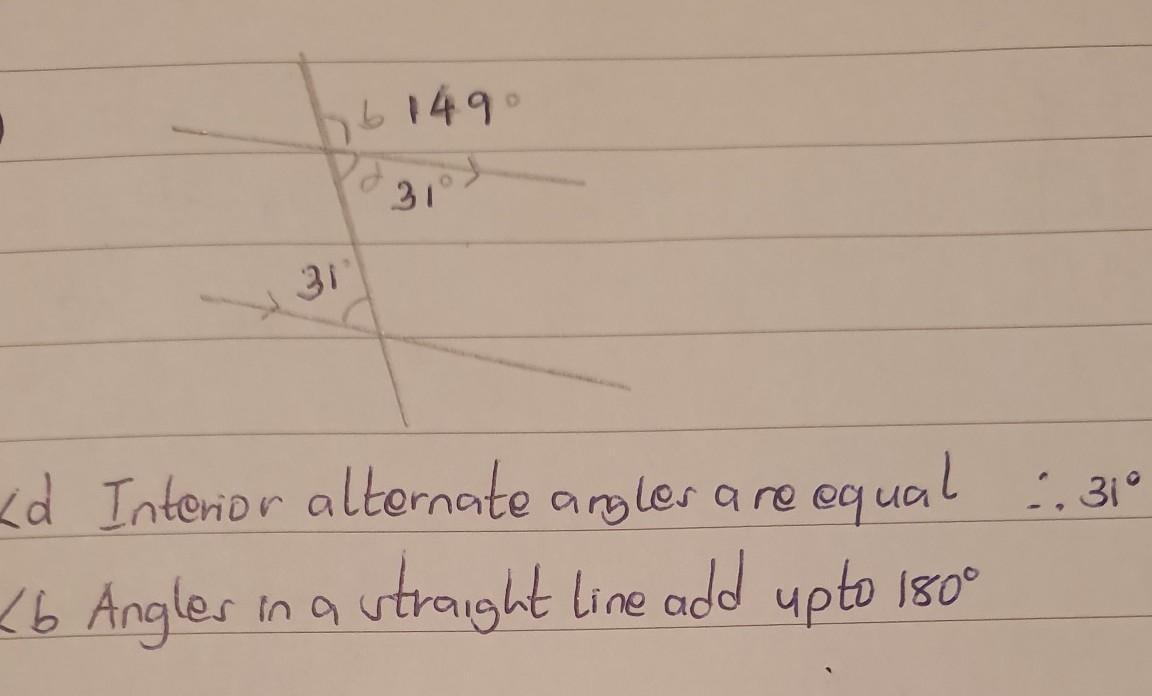 b 149°
d 31°
31°
<d Interior alternate angles are equal ∴ 31°
<b Angles in a straight line add upto 180°